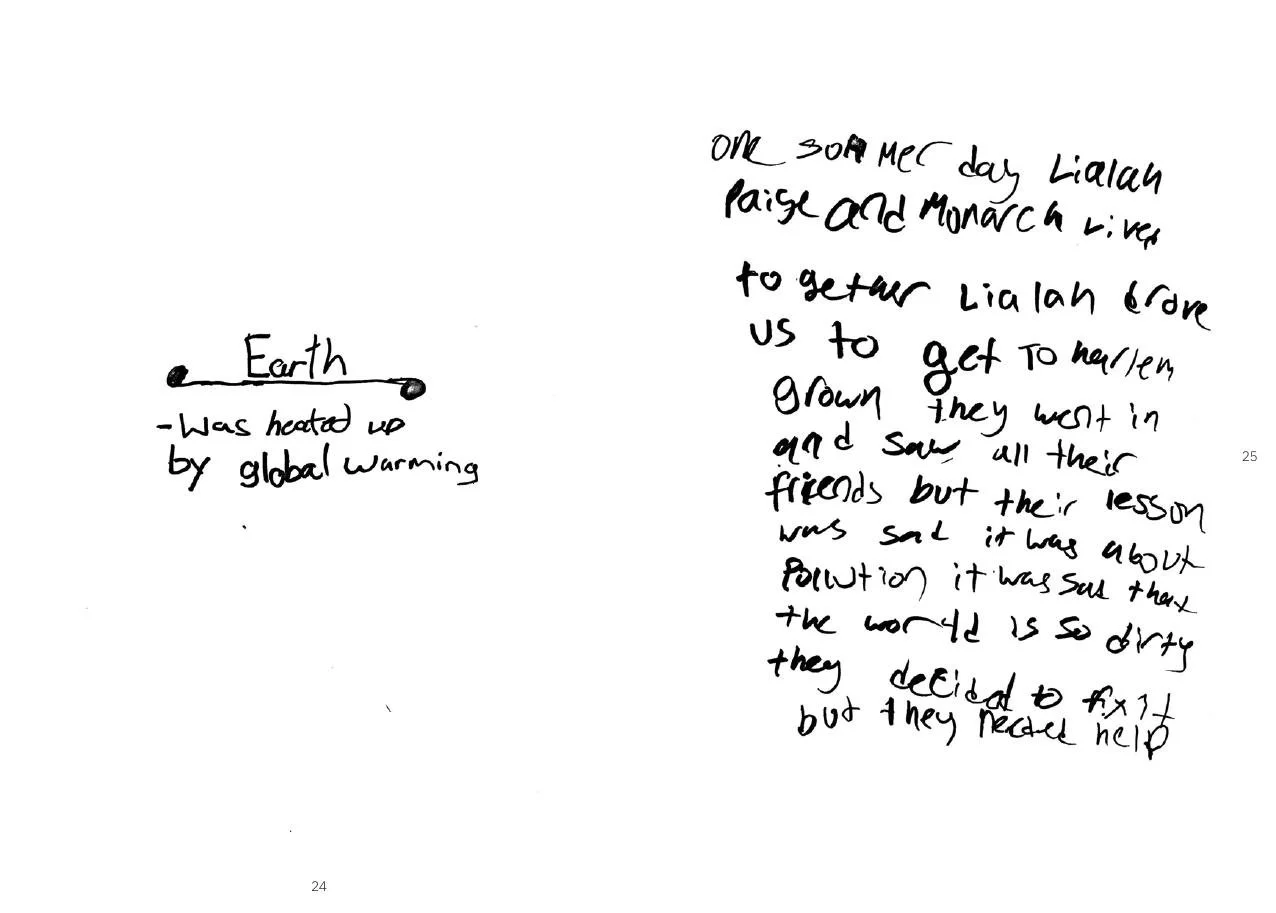 Earth
- Was heated up
by global warming
24
one sommer day Lialah
Paige and Monarch Lives
to gether Lialah drove
us to get To harlem
grown they went in
and saw all their
friends but their lesson
was sad it was about
Pollution it was sad that
the world is so dirty
they decided to fix it
but they needed help
25